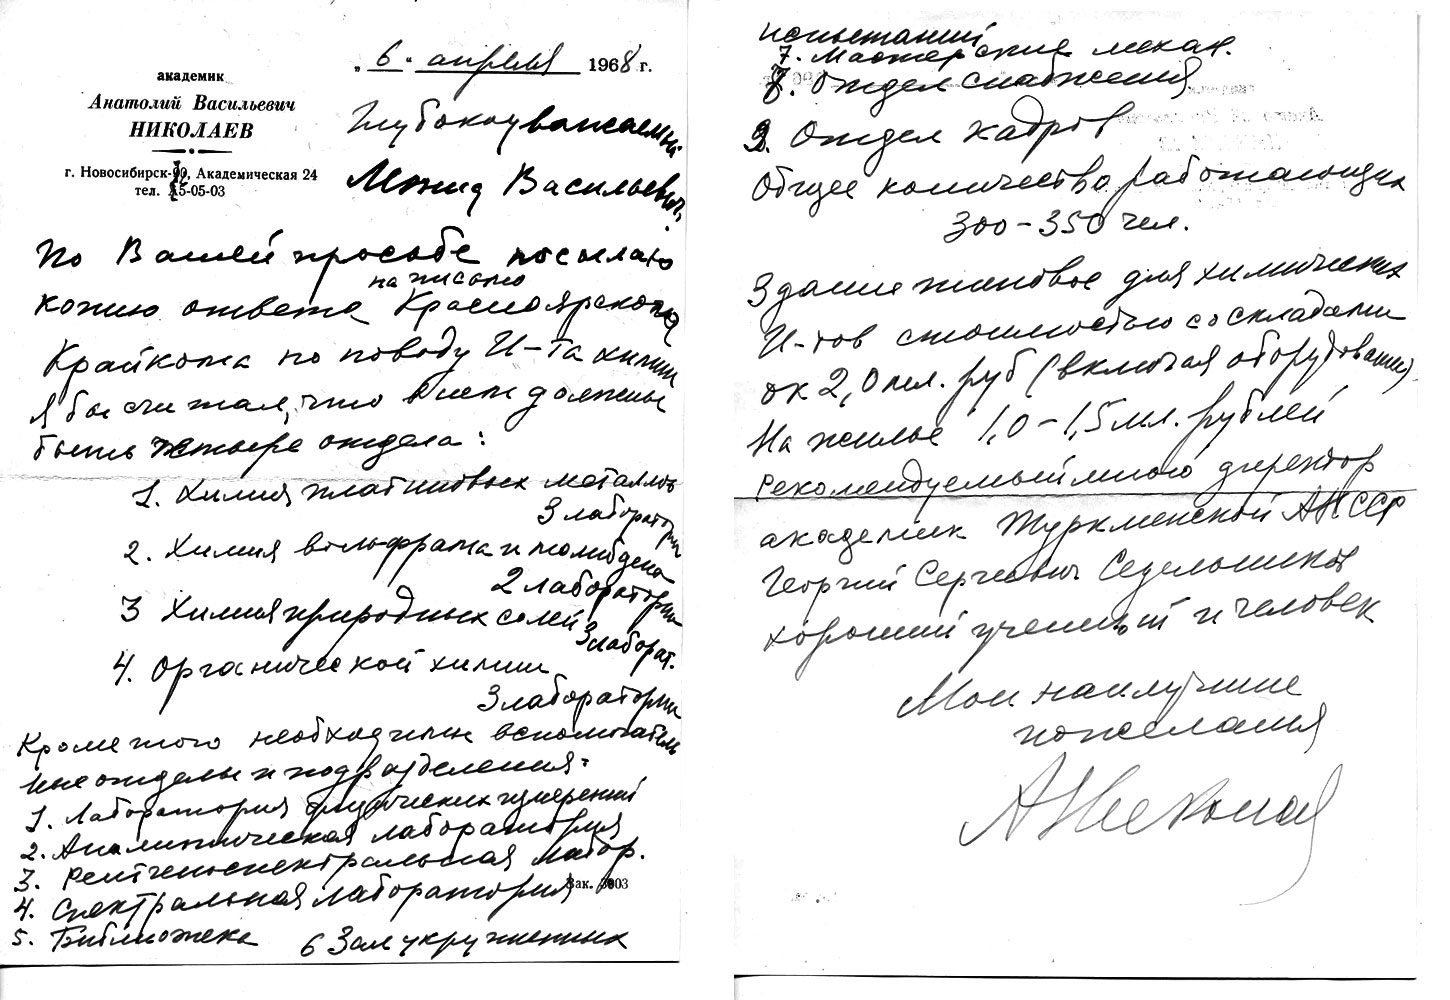 академик
Анатолий Васильевич
НИКОЛАЕВ
г. Новосибирск-90, Академическая 24
тел. 5-05-03
„6“ апреля 1968 г.
Глубокоуважаемый
Леонид Васильевич,
По Вашей просьбе посылаю
на письмо
копию ответа Красноярского
Крайкома по поводу И-та химии
Я бы считал, что в нем должны
быть четыре отдела:
1. Химия платиновых металлов
3 лаборатории
2. Химия вольфрама и молибдена
2 лаборатории
3 Химия природных солей
3 лаборат.
4. Органической химии
3 лаборатории
Кроме того необходимы вспомогатель
ные отделы и подразделения:
1. Лаборатория физических измерений
2. Аналитическая лаборатория
3. Рентгеноспектральная лабор.
4. Спектральная лаборатория
Зак. 3003
5. Библиотека 6 Зал укрупненных
испытаний
7. Мастерские механ.
8. Отдел снабжения
9. Отдел кадров
Общее количество работающих
300–350 чел.
Здание типовое для химических
И-тов стоимостью со складами
ок 2,0 мл. руб (включая оборудование)
На жилье 1,0–1,5 мл. рублей
Рекомендуемый мною директор
академик Туркменской АН ССР
Георгий Сергеевич Седельников
хороший ученый и человек
Мои наилучшие
пожелания
АНиколаев